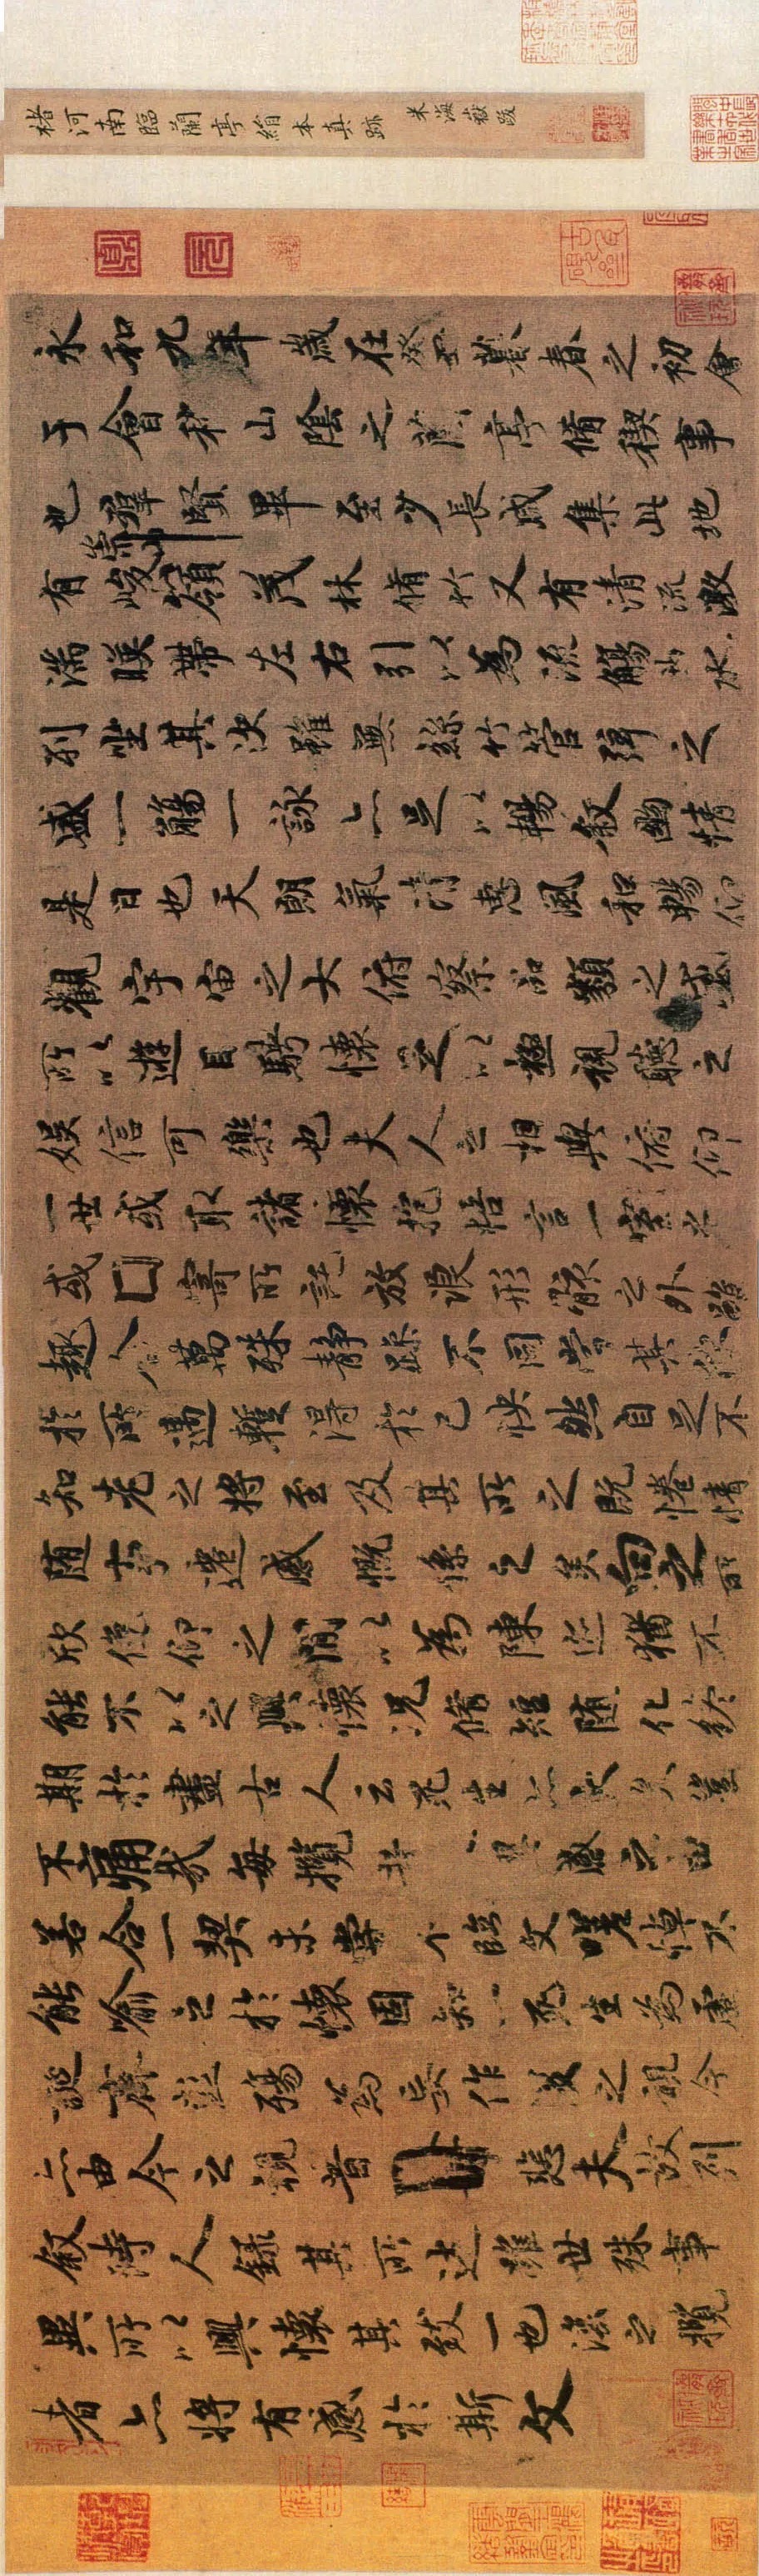 褚河南臨蘭亭絹本真跡 米海嶽跋
永和九年歲在癸丑暮春之初會
于會稽山陰之蘭亭脩稧事
也羣賢畢至少長咸集此地
有崇山峻領茂林脩竹又有清流激
湍暎帶左右引以為流觴曲水
列坐其次雖無絲竹管弦之
盛一觴一詠亦足以暢敘幽情
是日也天朗氣清惠風和暢仰
觀宇宙之大俯察品類之盛
所以遊目騁懷足以極視聽之
娛信可樂也夫人之相與俯仰
一世或取諸懷抱悟言一室之
或寄所託放浪形骸之外雖
趣舍萬殊靜躁不同當其欣
於所遇暫得於己怏然自足不
知老之將至及其所之既惓情
隨事遷感慨係之矣向之所
欣俛仰之閒以為陳迹猶不
能不以之興懷況脩短隨化終
期於盡古人云死生亦大矣豈
不痛哉每攬昔興感之由
若合一契未嘗不臨文嗟悼不
能喻之於懷固知死生為虛
誕齊彭殤為妄作後之視今
亦由今之視昔悲夫故列
敘時人錄其所述雖世殊事
異所以興懷其致一也後之攬
者亦將有感於斯文